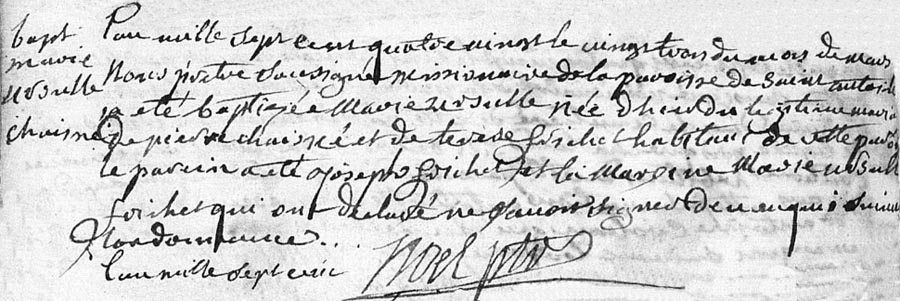 bapt
marie
ursulle
chaisné
L'an mille sept cent quatre vingt le vingt trois du mois de mars
Nous prêtre soussigné missionnaire de la paroisse de Saint antoine
a été baptizée Marie ursulle née d'hier du legitime maria
de pierre chaissné et de terese frichet habitans de cette paroi
le parrain a été joseph frichet et la Maraine Marie ursull
frichet qui ont declaré ne savoir signer de ce enquis suivan
l'ordonnance
L'an mille sept cent
Noel ptre